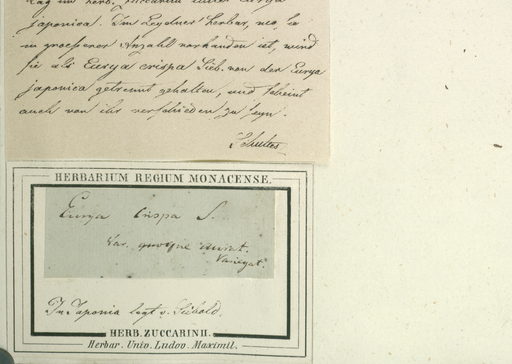 lag im Herb. Zuccarini unter Eurya
japonica. Im Leydner Herbar, wo, sie
in groesserer Anzahl vorhanden ist, wird
sie als Eurya crispa Sieb. von der Eurya
japonica getrennt gehalten, und scheint
auch von ihr verschieden zu seyn.
Schultes
HERBARIUM REGIUM MONACENSE.
Eurya crispa S.
Var. quoque
Variegat.
In Japonia legt v. Siebold.
HERB. ZUCCARINII.
Herbar. Univ. Ludov. Maximil.